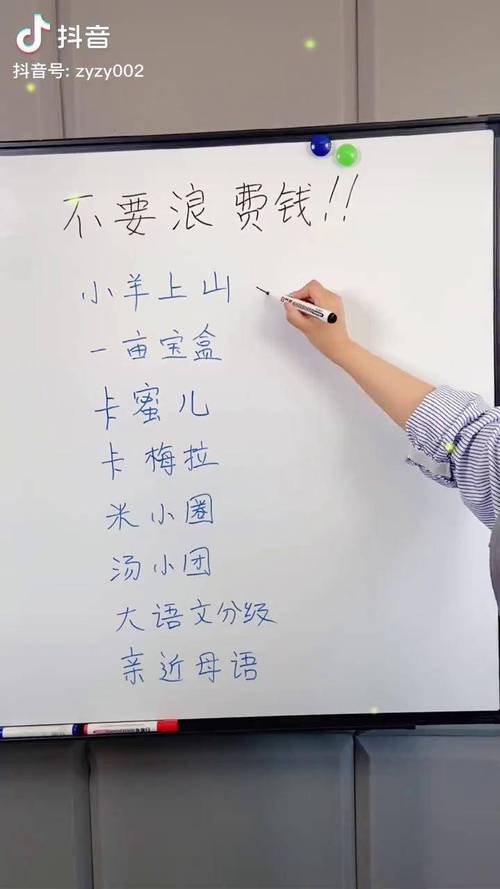 抖音
抖音号: zyzy002
不要浪费钱!!
小羊上山
一亩宝盒
卡蜜儿
卡梅拉
米小圈
汤小团
大语文分级
亲近母语